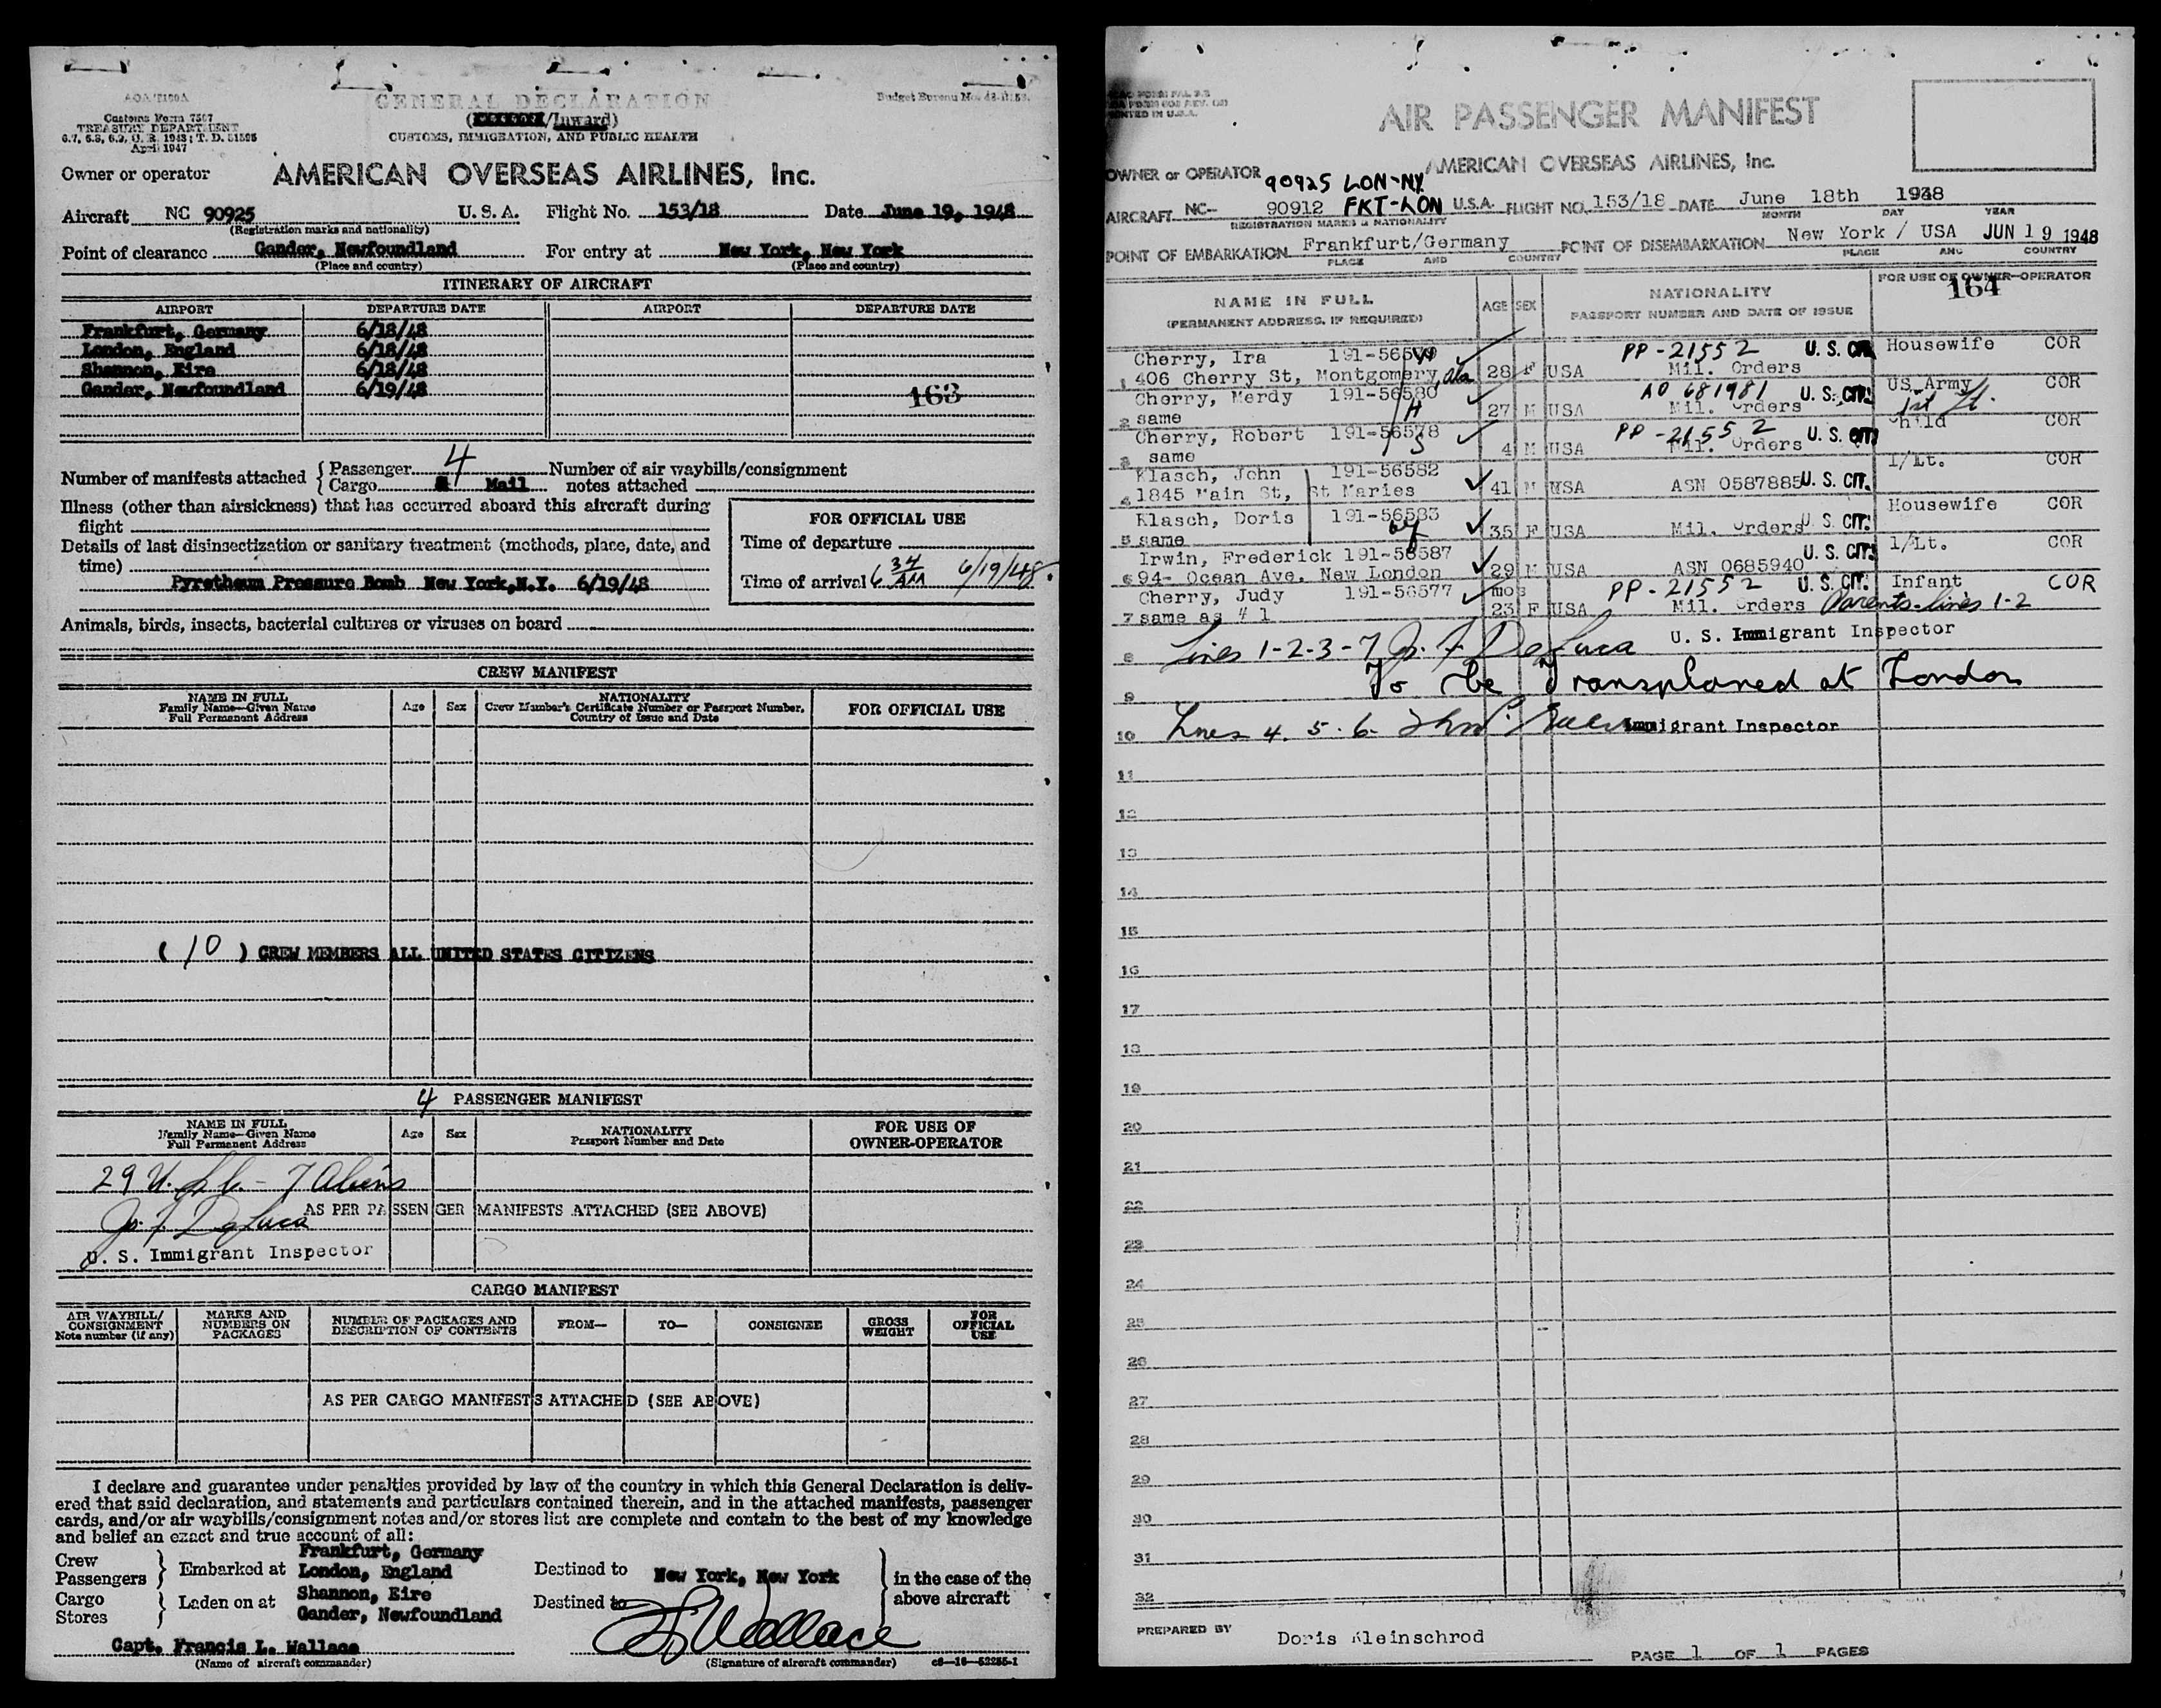 AOA T100A
Customs Form 7507
TREASURY DEPARTMENT
6.7, 6.8, 6.9, C. R. 1943; T. D. 51595
April 1947
GENERAL DECLARATION
(/Inward)
CUSTOMS, IMMIGRATION, AND PUBLIC HEALTH
Budget Bureau No.
Owner or operator AMERICAN OVERSEAS AIRLINES, Inc.
Aircraft NC 90925 U. S. A. Flight No. 153/18 Date June 19, 1948
(Registration marks and nationality)
Point of clearance Gander, Newfoundland For entry at New York, New York
(Place and country) (Place and country)
ITINERARY OF AIRCRAFT
AIRPORT DEPARTURE DATE AIRPORT DEPARTURE DATE
Frankfurt, Germany 6/18/48
London, England 6/18/48
Shannon, Eire 6/18/48
Gander, Newfoundland 6/19/48
163
Number of manifests attached { Passenger 4 Number of air waybills/consignment
Cargo Mail notes attached
Illness (other than airsickness) that has occurred aboard this aircraft during
flight
Details of last disinsectization or sanitary treatment (methods, place, date, and
time)
Pyretheum Pressure Bomb New York,N.Y. 6/19/48
FOR OFFICIAL USE
Time of departure
Time of arrival 6 34 AM 6/19/48
Animals, birds, insects, bacterial cultures or viruses on board
CREW MANIFEST
NAME IN FULL
Family Name—Given Name
Full Permanent Address
Age Sex
NATIONALITY
Crew Member's Certificate Number or Passport Number,
Country of Issue and Date
FOR OFFICIAL USE
( 10 ) CREW MEMBERS ALL UNITED STATES CITIZENS
4 PASSENGER MANIFEST
NAME IN FULL
Family Name—Given Name
Full Permanent Address
Age Sex
NATIONALITY
Passport Number and Date
FOR USE OF
OWNER-OPERATOR
29 U. S. C. - 7 Aliens
Jo. F. DeLuca AS PER PASSENGER MANIFESTS ATTACHED (SEE ABOVE)
U. S. Immigrant Inspector
CARGO MANIFEST
AIR WAYBILL/
CONSIGNMENT
Note number (if any)
MARKS AND
NUMBERS ON
PACKAGES
NUMBER OF PACKAGES AND
DESCRIPTION OF CONTENTS
FROM— TO— CONSIGNEE
GROSS
WEIGHT
FOR
OFFICIAL
USE
AS PER CARGO MANIFESTS ATTACHED (SEE ABOVE)
I declare and guarantee under penalties provided by law of the country in which this General Declaration is deliv-
ered that said declaration, and statements and particulars contained therein, and in the attached manifests, passenger
cards, and/or air waybills/consignment notes and/or stores list are complete and contain to the best of my knowledge
and belief an exact and true account of all:
Crew
Passengers } Embarked at
Cargo
Stores } Laden on at
Frankfurt, Germany
London, England
Shannon, Eire
Gander, Newfoundland
Destined to New York, New York
Destined to
in the case of the
above aircraft
Capt. Francis L. Wallace
(Name of aircraft commander)
F L Wallace
(Signature of aircraft commander)
AIR PASSENGER MANIFEST
OWNER or OPERATOR AMERICAN OVERSEAS AIRLINES, Inc.
90925 LON-NY
AIRCRAFT NC- 90912 FKT-LON U.S.A. FLIGHT NO. 153/18 DATE June 18th 1948
REGISTRATION MARKS & NATIONALITY MONTH DAY YEAR
POINT OF EMBARKATION Frankfurt/Germany POINT OF DISEMBARKATION New York / USA JUN 19 1948
PLACE AND COUNTRY PLACE AND COUNTRY
NAME IN FULL
(PERMANENT ADDRESS, IF REQUIRED)
AGE SEX
NATIONALITY
PASSPORT NUMBER AND DATE OF ISSUE
FOR USE OF OWNER-OPERATOR
164
Cherry, Ira 191-56579 W PP-21552 U. S. CIT. Housewife COR
1 406 Cherry St, Montgomery, Ala 28 F USA Mil. Orders
Cherry, Merdy 191-56580 H AO 681981 U. S. CIT. US Army COR
2 same 27 M USA Mil. Orders 1st Lt.
Cherry, Robert 191-56578 S PP-21552 U. S. CIT. Child COR
3 same 4 M USA Mil. Orders
Klasch, John 191-56582 1/Lt. COR
4 1845 Main St, St Maries 41 M USA ASN 0587885 U. S. CIT.
Klasch, Doris 191-56583 Housewife COR
5 same wf 35 F USA Mil. Orders U. S. CIT.
Irwin, Frederick 191-56587 U. S. CIT. 1/Lt. COR
6 94- Ocean Ave. New London 29 M USA ASN 0685940
Cherry, Judy 191-56577 mos PP-21552 U. S. CIT. Infant COR
7 same as # 1 23 F USA Mil. Orders Parents-lines 1-2
8 Lines 1-2-3-7 Jo. F. DeLuca U. S. Immigrant Inspector
9 To be Transplaned at London
10 Lines 4. 5. 6. Immigrant Inspector
11
12
13
14
15
16
17
18
19
20
21
22
23
24
25
26
27
28
29
30
31
32
PREPARED BY Doris Kleinschrod
PAGE 1 OF 1 PAGES